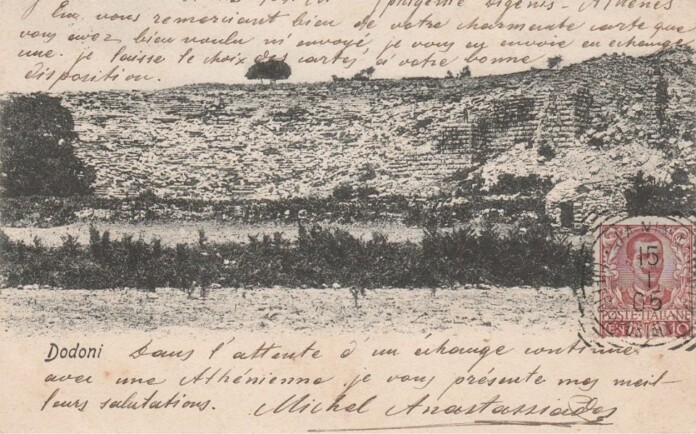 Iphigénie Digenis - Athènes
En vous remerciant bien de votre charmante carte que
vous avez bien voulu m'envoyé, je vous en envoie en échange
une. je laisse le choix des cartes à votre bonne
disposition.
15
1
05
POSTE ITALIANE
Dodoni
Dans l'attente d'un échange continue
avec une Athénienne je vous présente mes meil-
leurs salutations. Michel Anastassiades